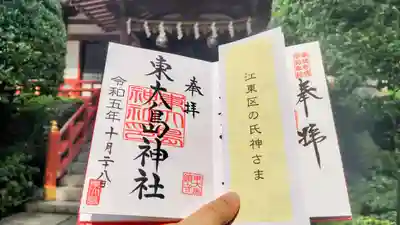 奉拝
東大島神社
令和五年十月二十八日
江東区の氏神さま
奉拝